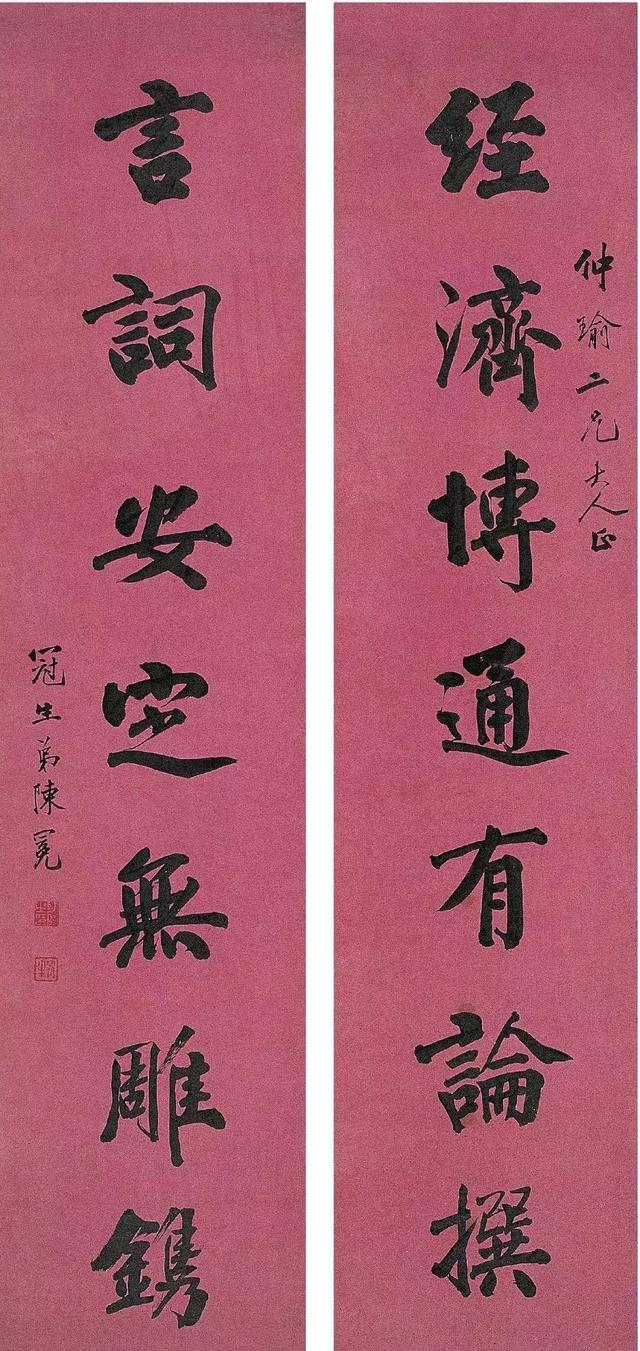 仲瑜二兄大人正
經濟博通有論撰
言詞安定無雕鐫
冠生弟陳冕